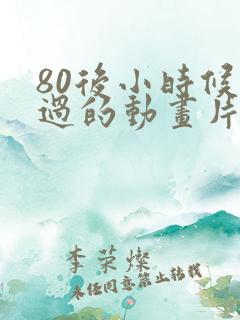 80後小時候
過的動畫片
李荣燦
未经同意禁止转载